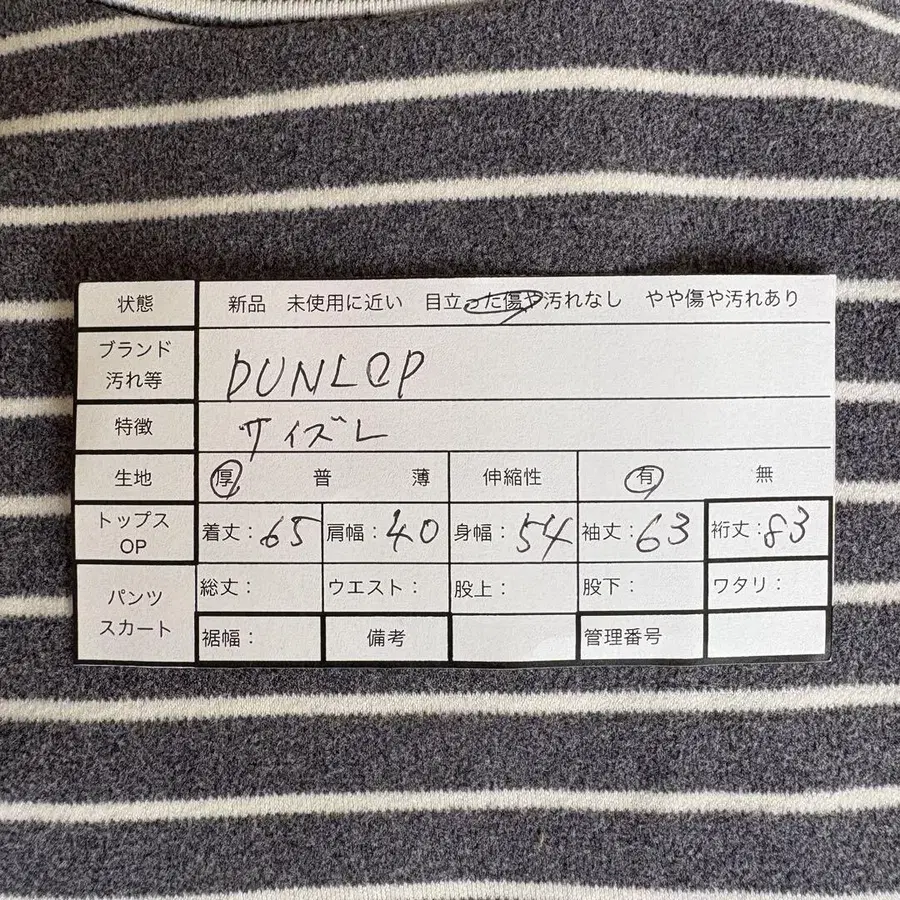 状態 新品 未使用に近い 目立った傷や汚れなし やや傷や汚れあり
ブランド
汚れ等 DUNLOP
特徴 サイズL
生地 厚 普 薄 伸縮性 有 無
トップス
OP 着丈：65 肩幅：40 身幅：54 袖丈：63 裄丈：83
パンツ
スカート 総丈： ウエスト： 股上： 股下： ワタリ：
裾幅： 備考 管理番号